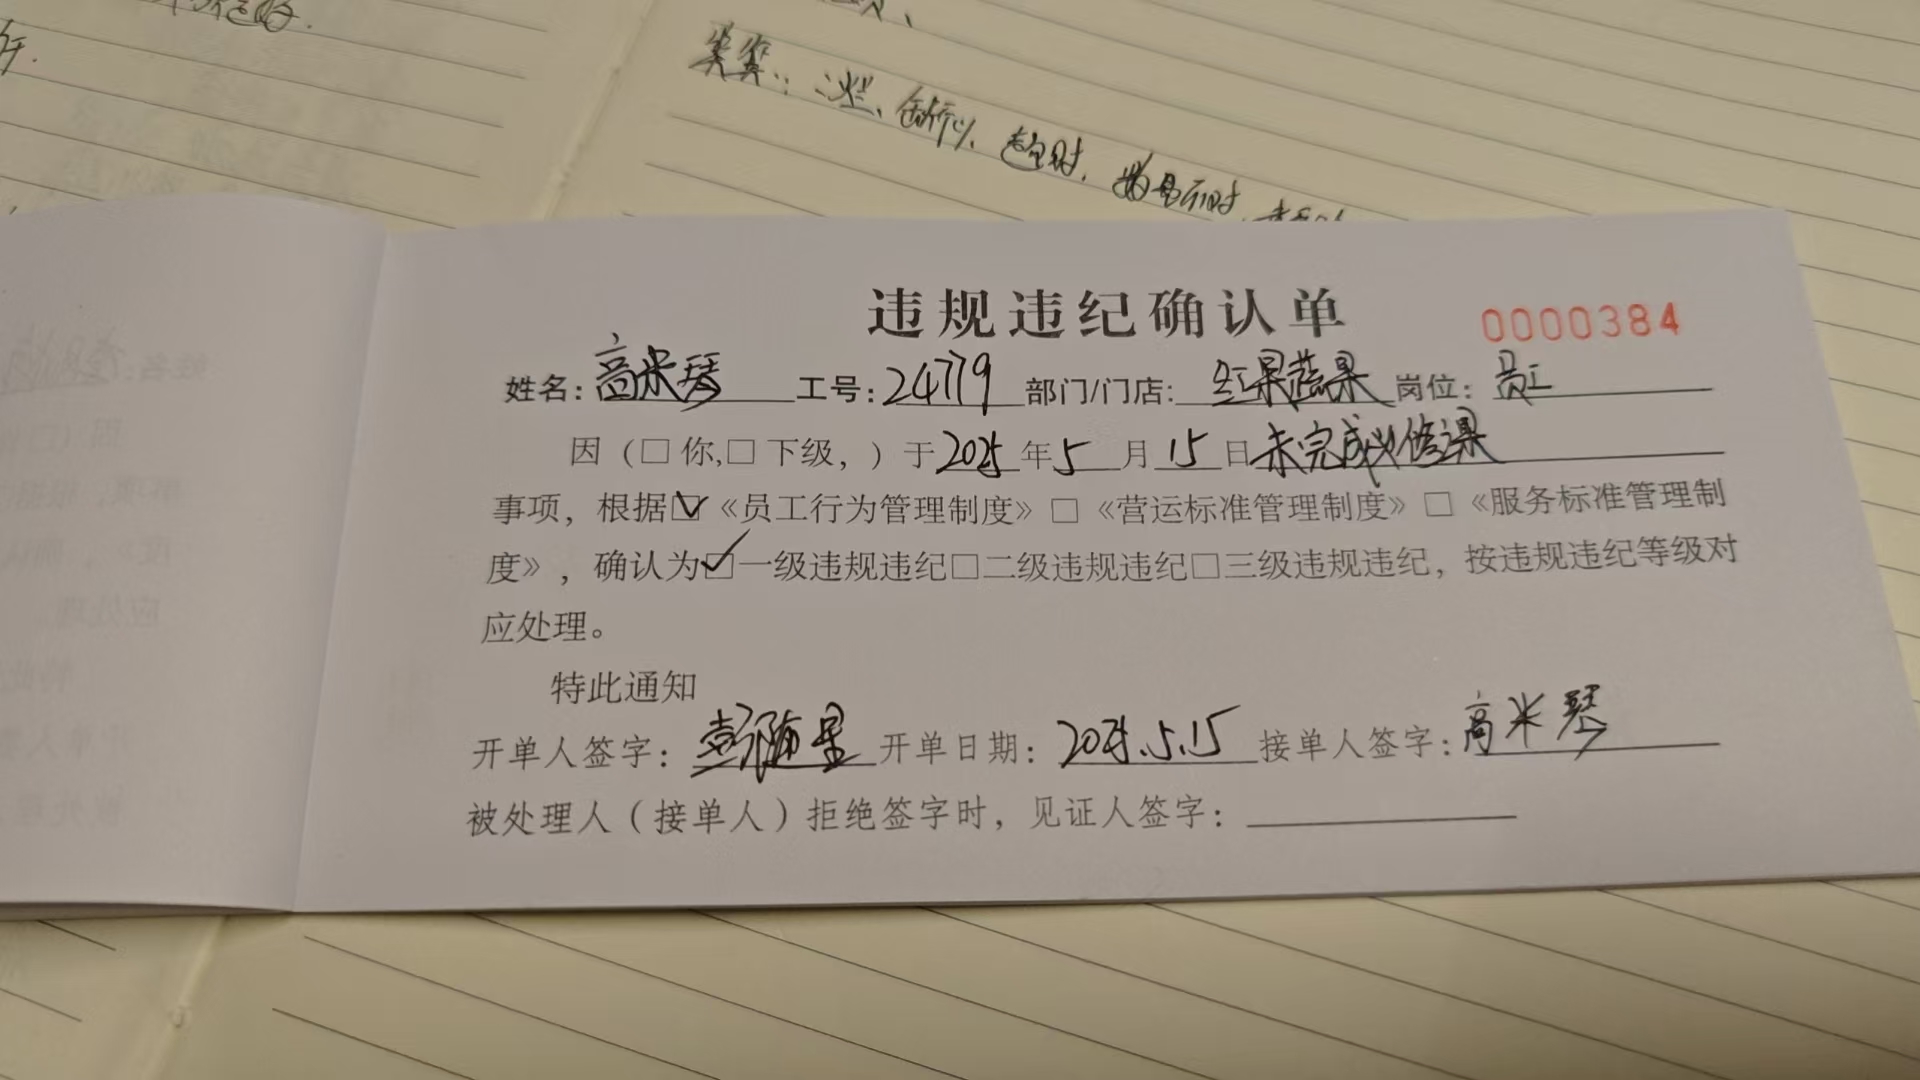 类案：烂、
超时、
违规违纪确认单 0000384
姓名：高米琴 工号：24779 部门/门店: 红果蔬果 岗位：员工
因（□你,□下级，）于2025年5月15日未完成必修课
事项，根据☑《员工行为管理制度》□《营运标准管理制度》□《服务标准管理制
度》，确认为☑一级违规违纪□二级违规违纪□三级违规违纪，按违规违纪等级对
应处理。
特此通知
开单人签字：彭随星 开单日期：2025.5.15 接单人签字：高米琴
被处理人（接单人）拒绝签字时，见证人签字：